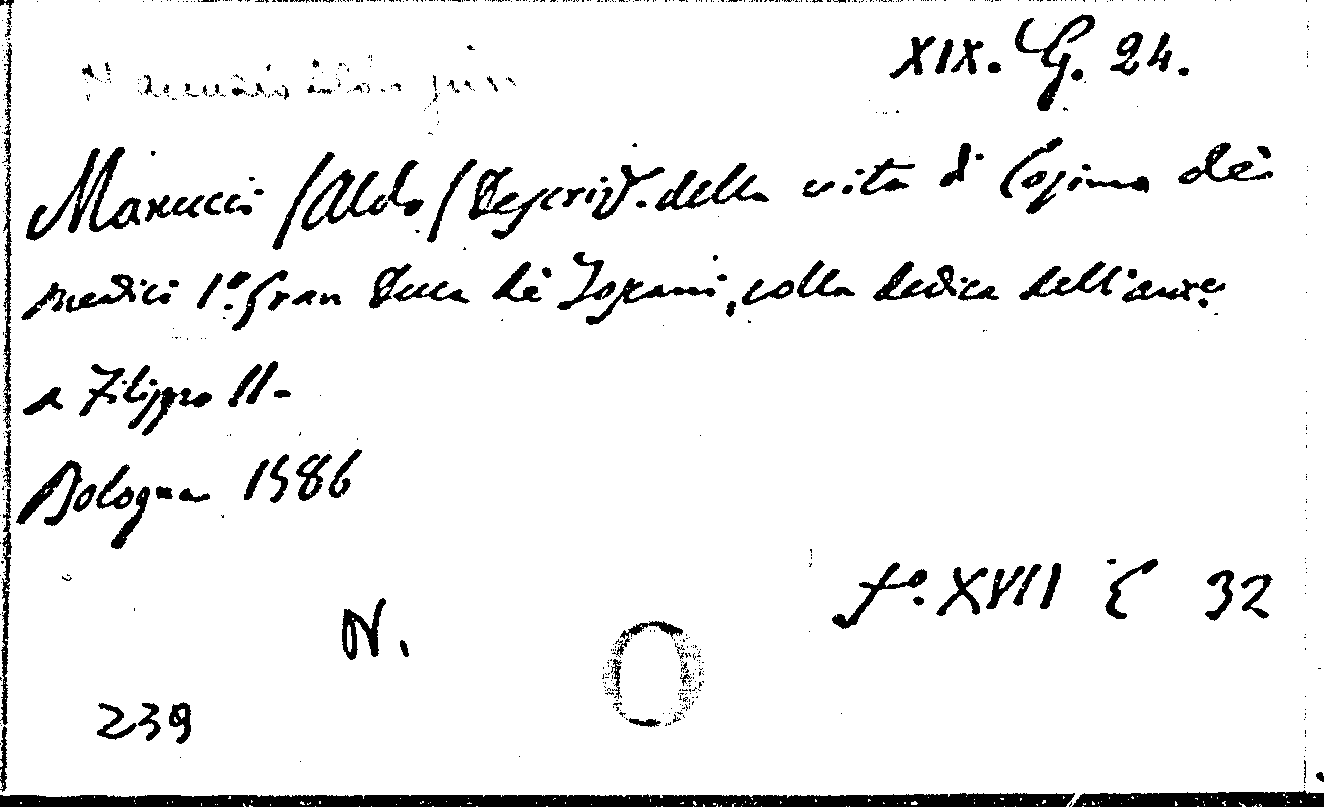 XIX. G. 24.
Manuzio Aldo jun
Manucci /Aldo/ Descriz. della vita di Cosimo de'
medici 1º. gran Duca de' Toscani, colla dedica dell'
a Filippo II.
Bologna 1586
fº. XVII E 32
N.
239